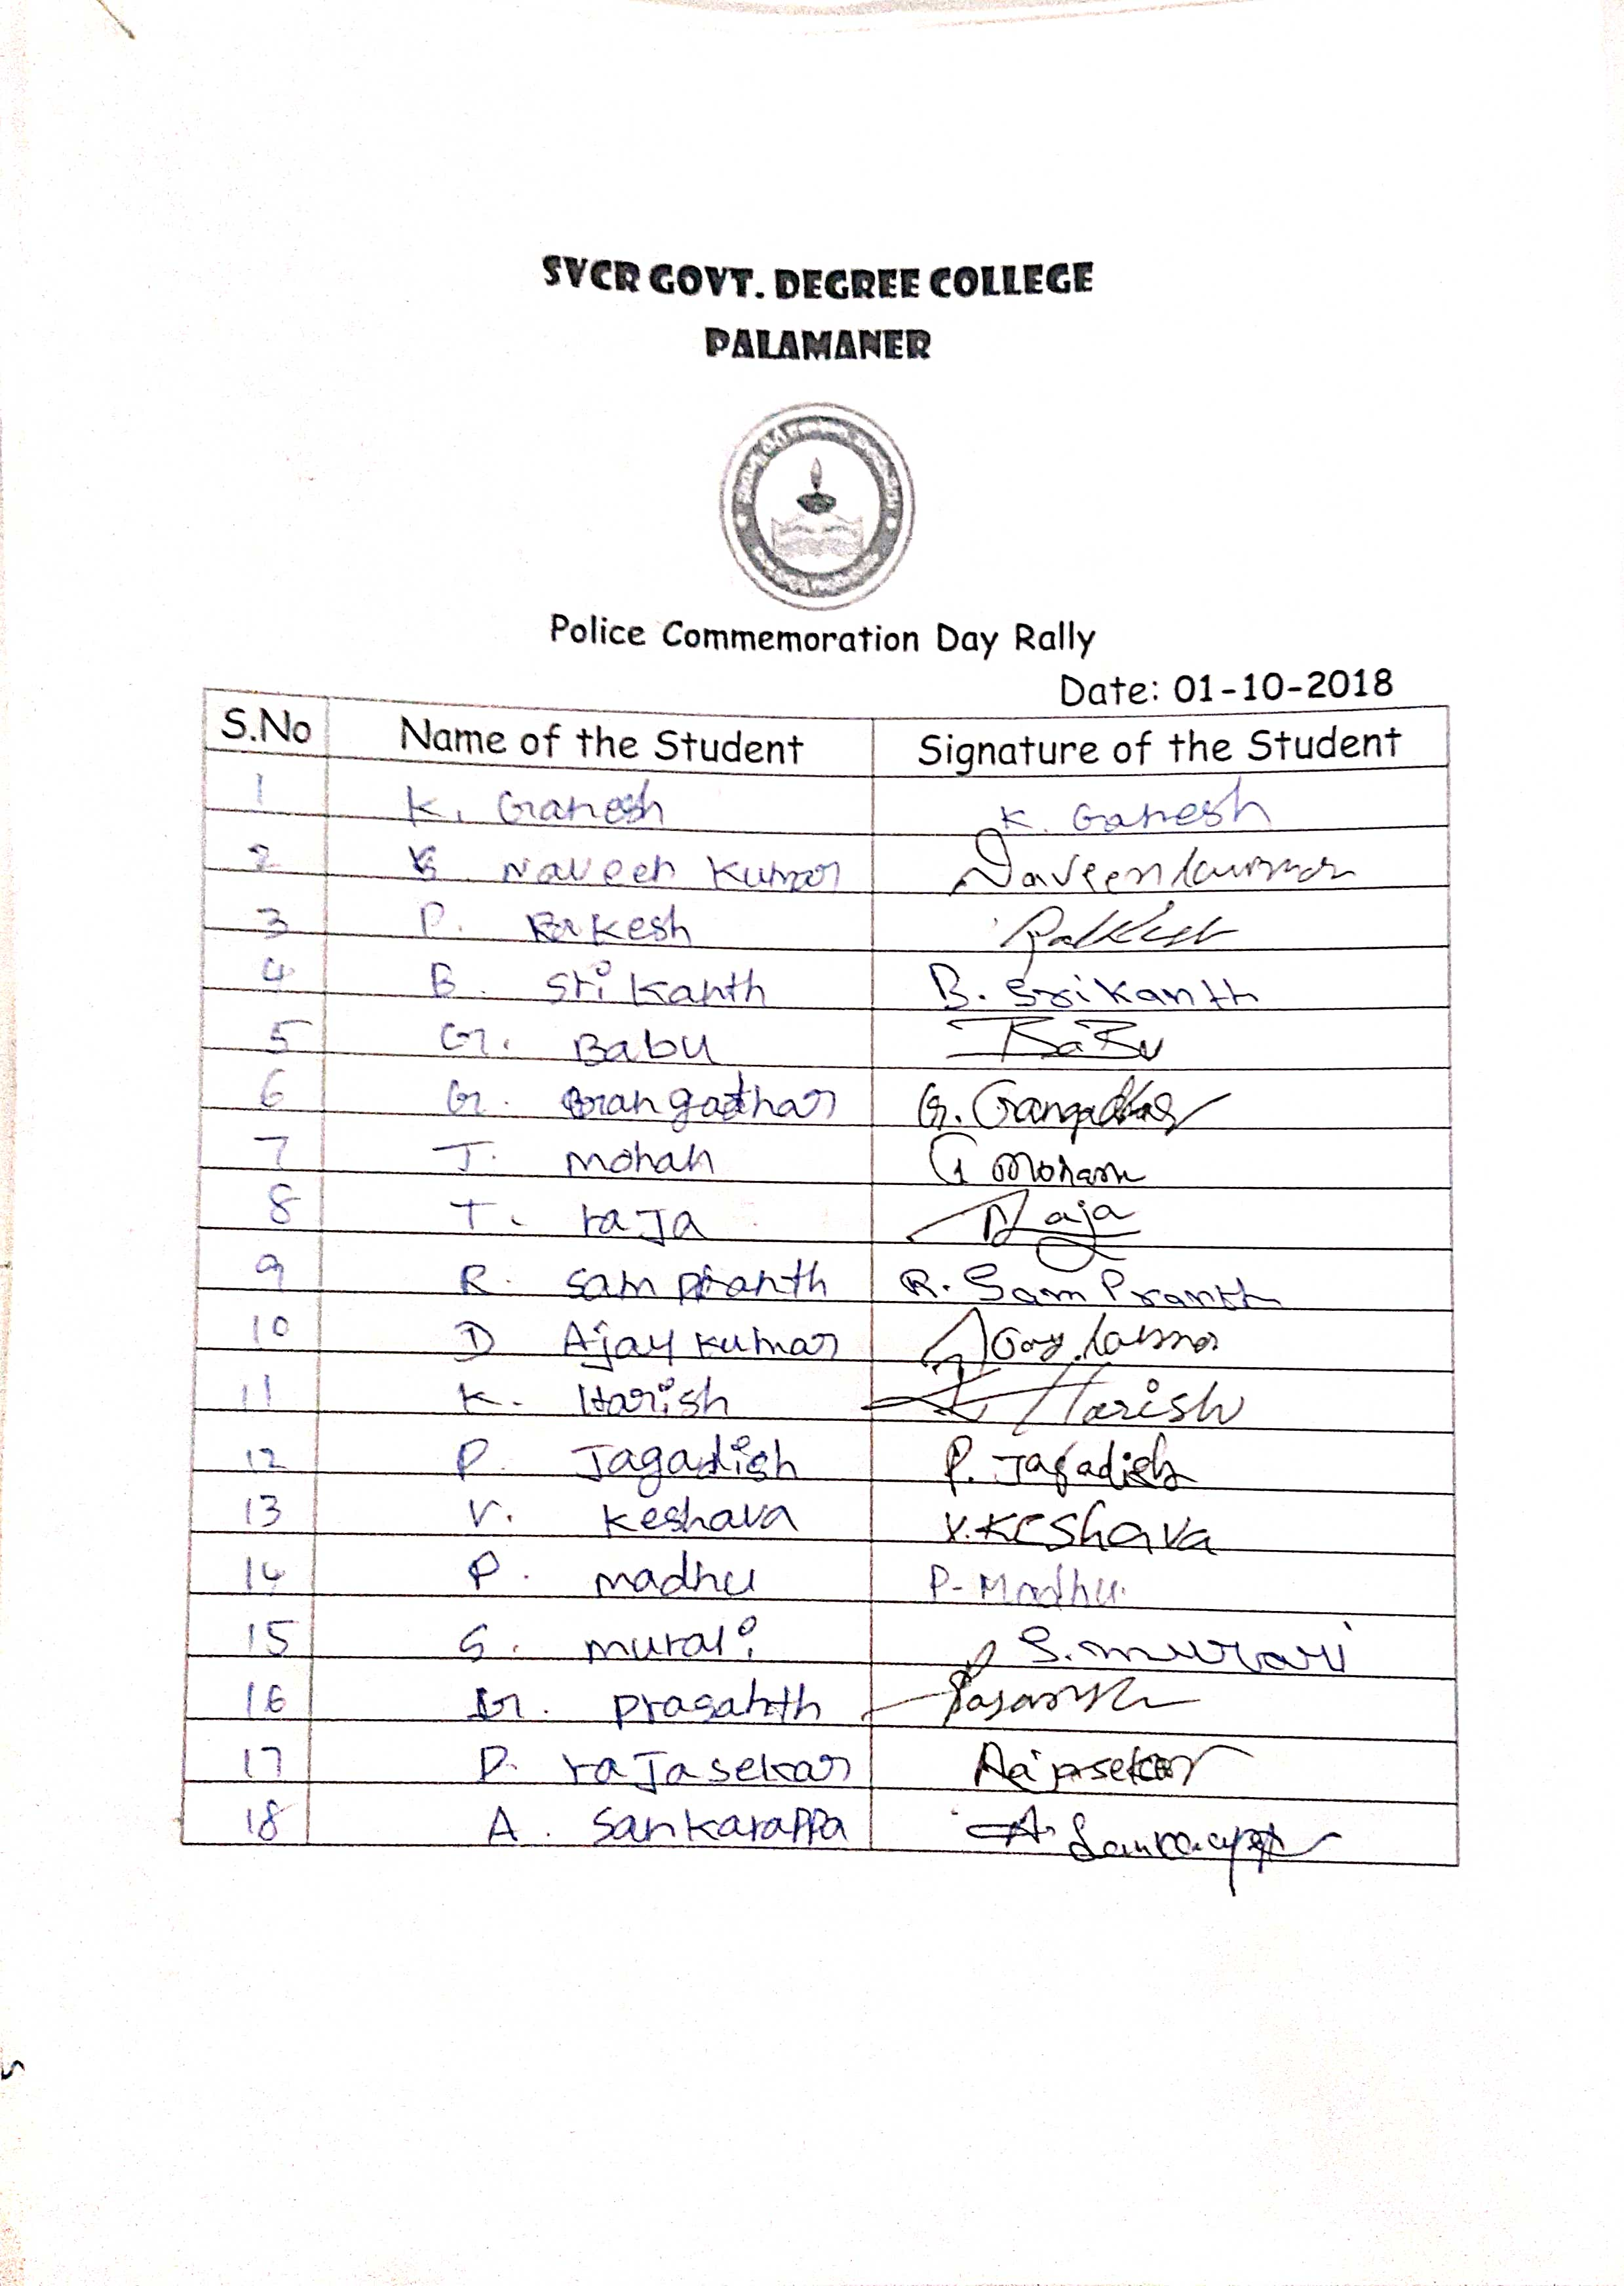 SVCR GOVT. DEGREE COLLEGE
PALAMANER
Police Commemoration Day Rally
Date: 01-10-2018
S.No Name of the Student Signature of the Student
1 K. Ganesh K. Ganesh
2 Naveen Kumar Naveenkumar
3 P. Rakesh
4 B. Srikanth B. Srikanth
5 G. Babu BaBu
6 G. Gangadhar G. Gangadhar
7 J. mohan mohan
8 T. raJa Raja
9 R. sam pranth R. Sam Pranth
10 D Ajay kumar
11 K. Harish Harish
12 P. Jagadish P. Jagadish
13 V. keshava V. KeShava
14 P. madhu P. Madhu
15 S. murali S. murari
16 G. prasanth
17 P. raJasekar Rajasekar
18 A. SankaraPPa A.